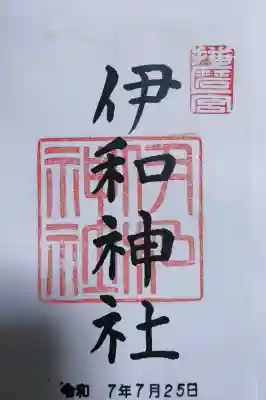 播磨一宮
伊和神社
伊和
神社
令和 7年7月25日